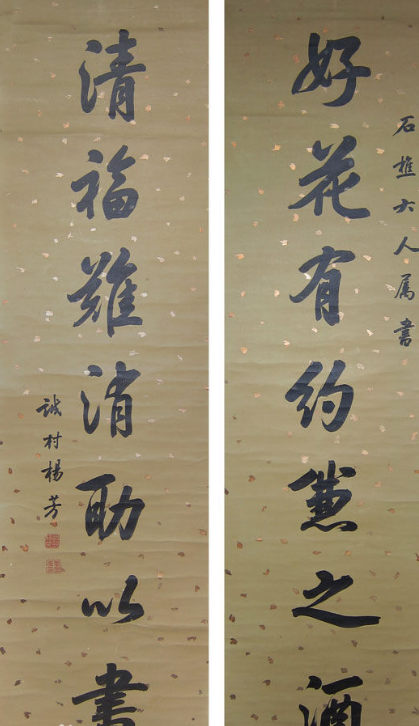 石樵大人属書
好花有約兼之酒
清福難消助以書
誠村楊芳